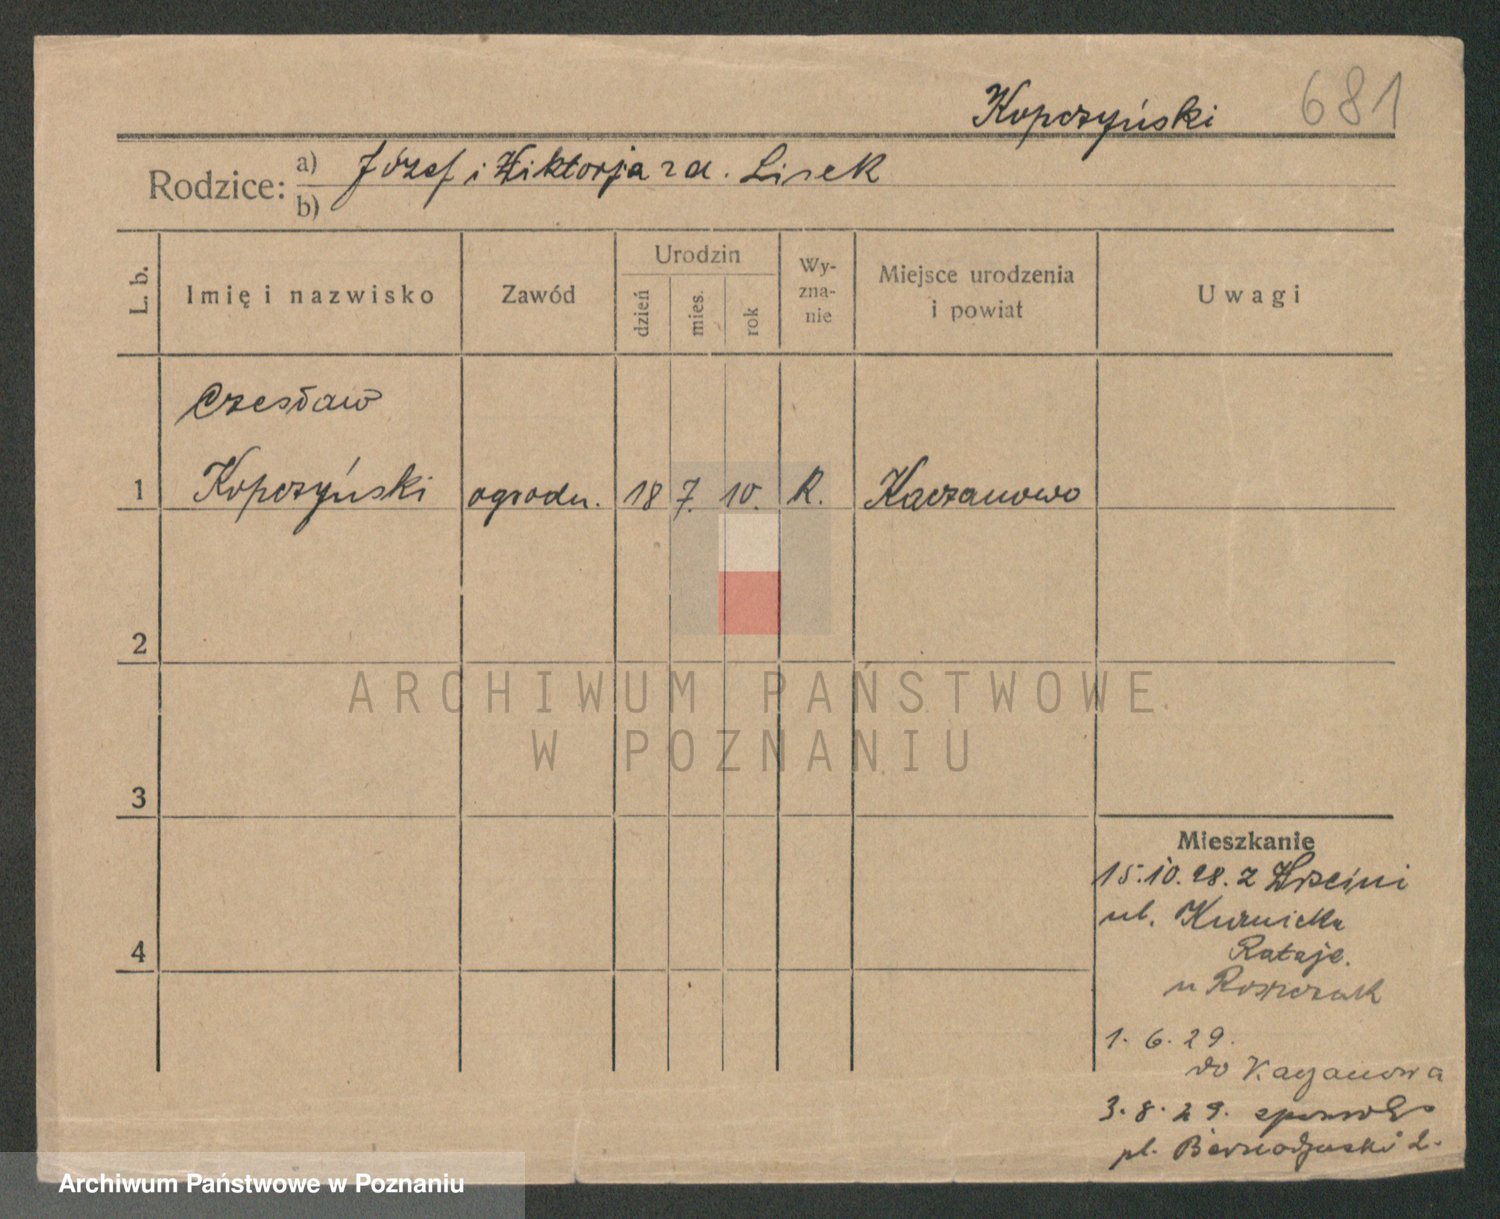 Kopczyński 681
Rodzice: a) Józef i Wiktorja zd. Lisek
b)
L. b. Imię i nazwisko Zawód Urodzin dzień mies. rok Wy-zna-nie Miejsce urodzenia i powiat Uwagi
Czesław
1 Kopczyński ogrodn. 18 7. 10. R. Kaczanowo
2
ARCHIWUM PAŃSTWOWE
W POZNANIU
3
Mieszkanie
15.10.28. z Wrześni
ul. Kurnicka
4
Rataje.
u Roszczak
1. 6. 29.
do Kaczanowa
3. 8. 29.
pl. Bernardyński 2.
Archiwum Państwowe w Poznaniu